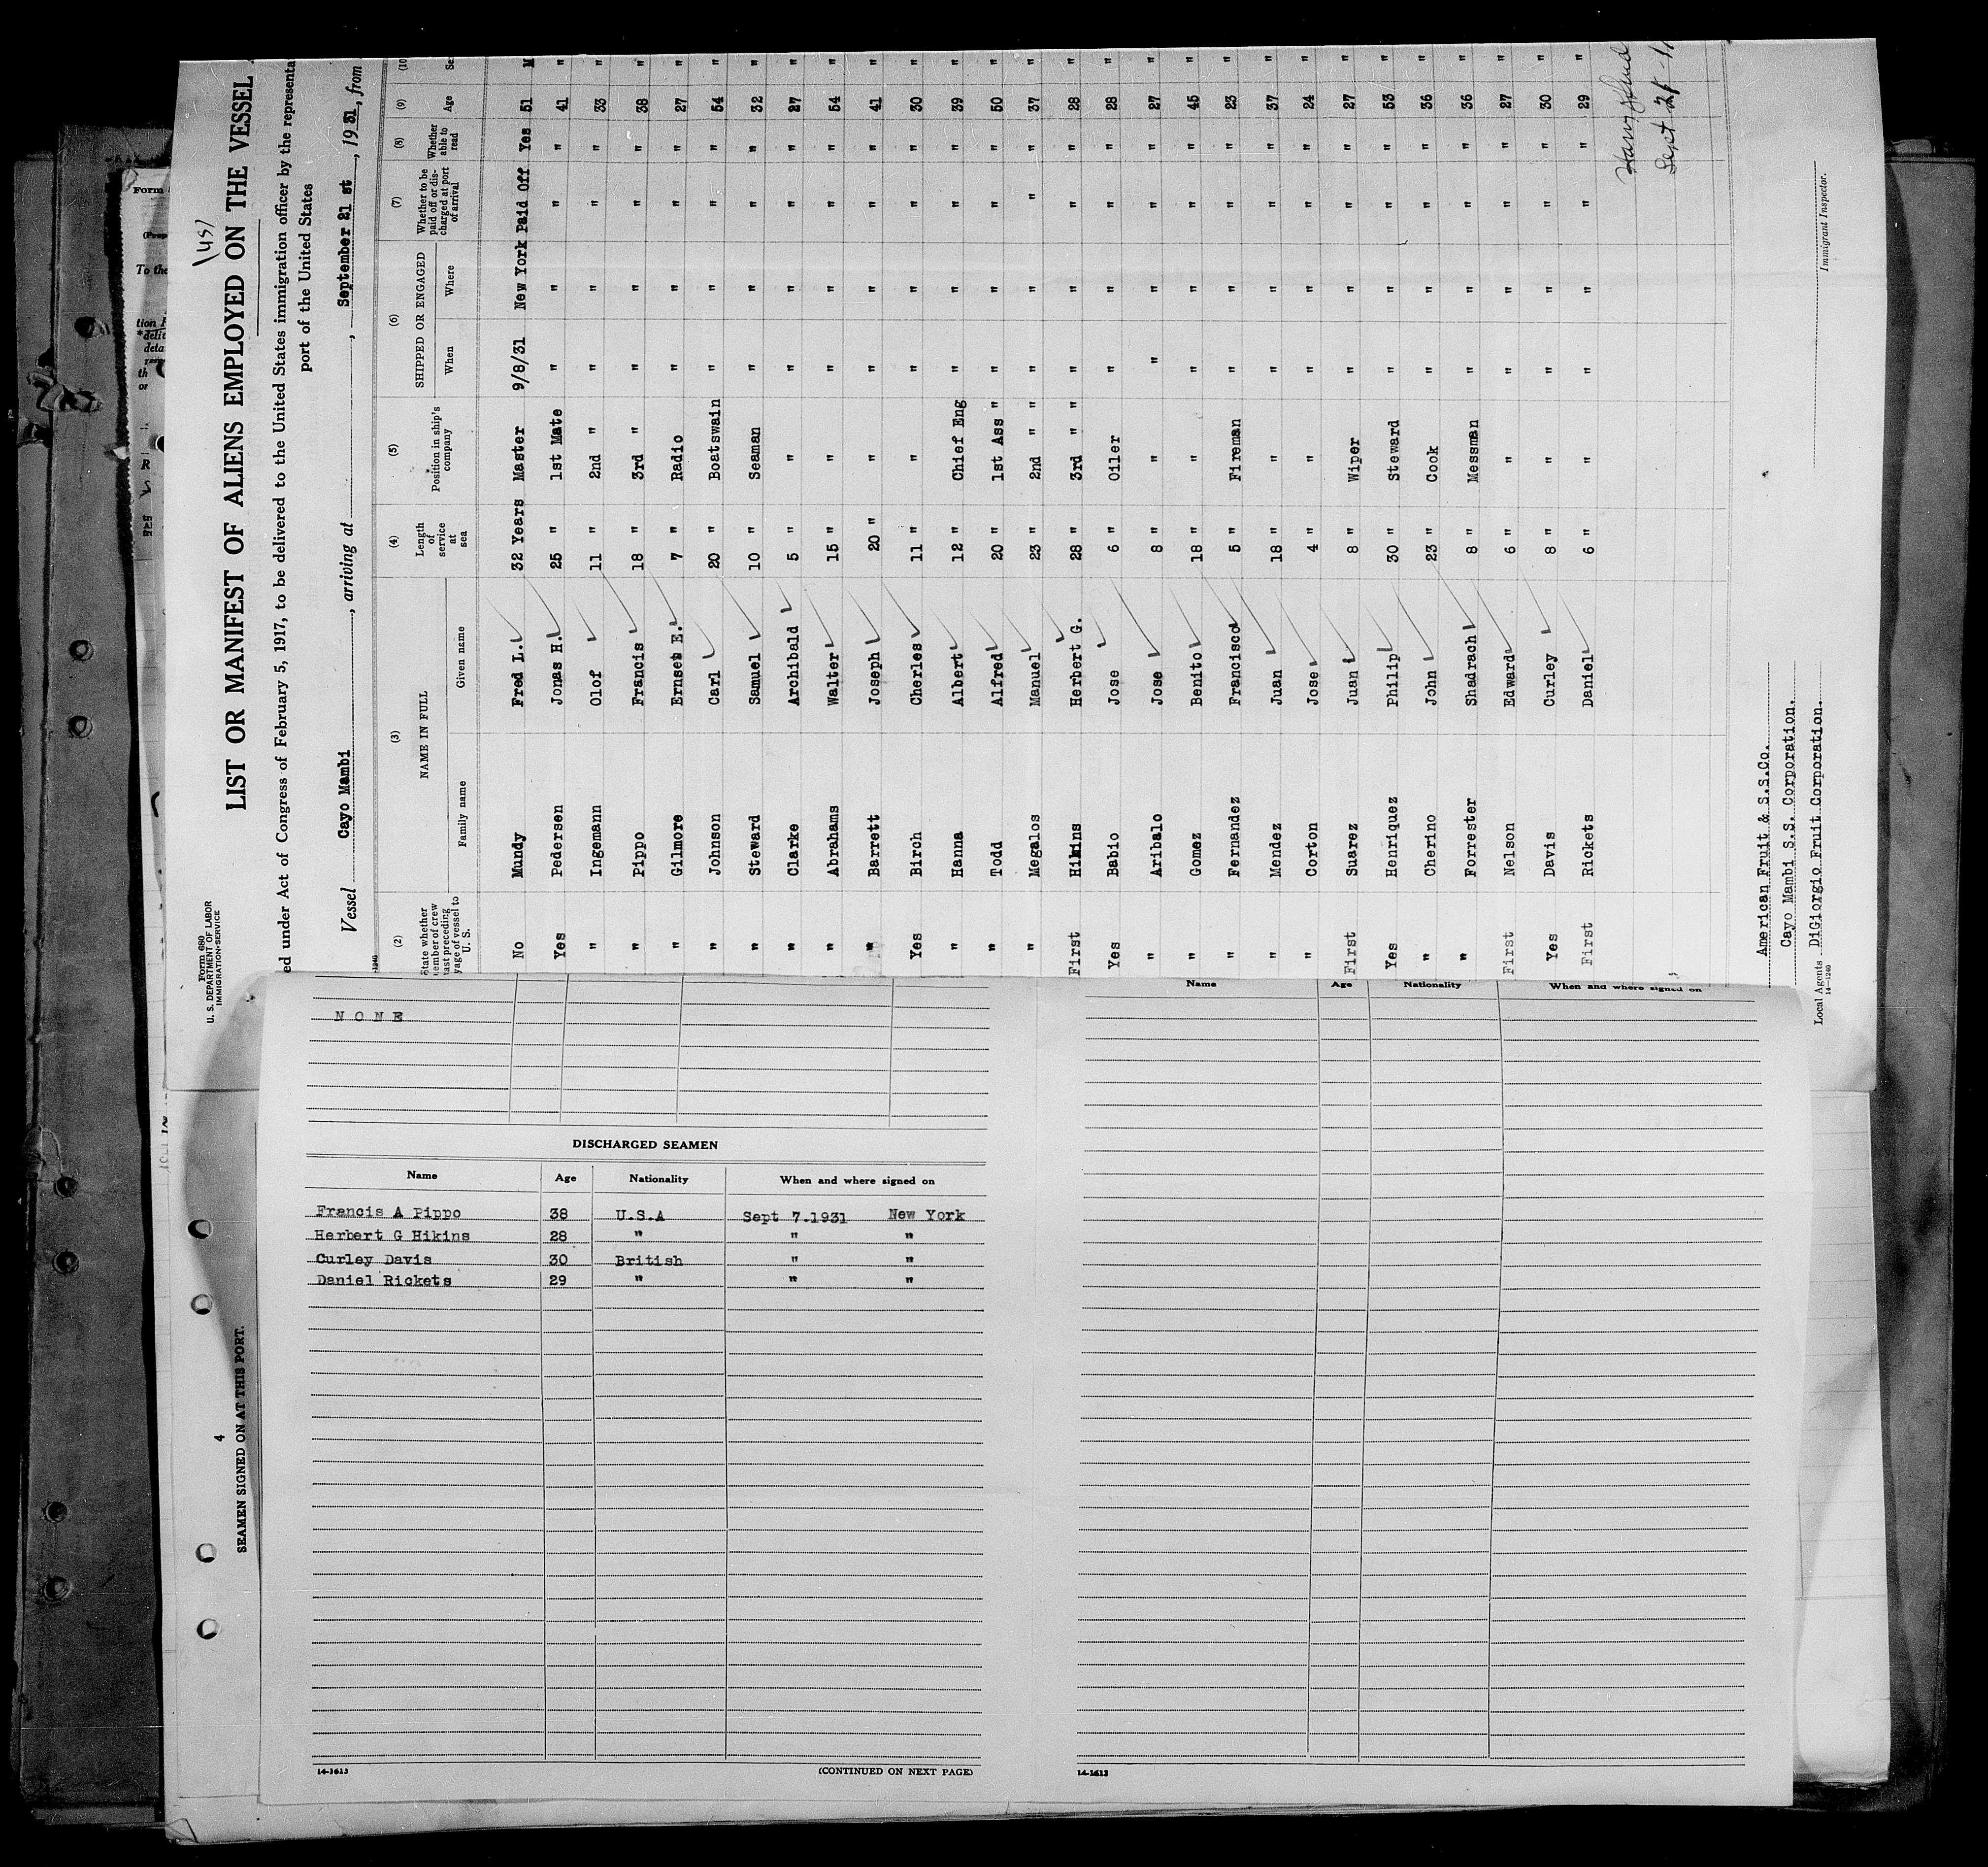 Form 680
U. S. DEPARTMENT OF LABOR
IMMIGRATION SERVICE
LIST OR MANIFEST OF ALIENS EMPLOYED ON THE VESSEL
ed under Act of Congress of February 5, 1917, to be delivered to the United States immigration officer by the representa
port of the United States
Vessel Cayo Mambi, arriving at , September 21 st, 1931, from
(2) (3) (4) (5) (6) (7) (8) (9) (10
State whether member of crew last preceding voyage of vessel to U. S. NAME IN FULL Length of service at sea Position in ship's company SHIPPED OR ENGAGED Whether to be paid off or discharged at port of arrival Whether able to read Age Se
Family name Given name When Where
No Mundy Fred L. 32 Years Master 9/8/31 New York Paid Off Yes 51 M
Yes Pedersen Jonas H. 25 " 1st Mate " " " " 41 "
" Ingemann Olof 11 " 2nd " " " " " 33 "
" Pippo Francis 18 " 3rd " " " " " 38 "
" Gilmore Ernset E. 7 " Radio " " " " 27 "
" Johnson Carl 20 " Boatswain " " " " 54 "
" Steward Samuel 10 " Seaman " " " " 32 "
" Clarke Archibald 5 " " " " " " 27 "
" Abrahams Walter 15 " " " " " " 54 "
" Barrett Joseph 20 " " " " " " 41 "
Yes Birch Cherles 11 " " " " " " 30 "
" Hanna Albert 12 " Chief Eng " " " " 39 "
" Todd Alfred 20 " 1st Ass " " " " " 50 "
" Megalos Manuel 23 " 2nd " " " " " " 37 "
First Hikins Herbert G. 28 " 3rd " " " " " " 28 "
Yes Babio Jose 6 " Oiler " " " " 28 "
" Aribalo Jose 8 " " " " " " 27 "
" Gomez Benito 18 " " " " " " 45 "
" Fernandez Francisco 5 " Fireman " " " " 23 "
" Mendez Juan 18 " " " " " " 37 "
" Corton Jose 4 " " " " " " 24 "
First Suarez Juan 8 " Wiper " " " " 27 "
Yes Henriquez Philip 30 " Steward " " " " 53 "
" Cherino John 23 " Cook " " " " 36 "
" Forrester Shadrach 8 " Messman " " " " 36 "
First Nelson Edward 6 " " " " " " 27 "
Yes Davis Curley 8 " " " " " " 30 "
First Rickets Daniel 6 " " " " " " 29 "
Immigrant Inspector.
American Fruit & S.S.Co.
Cayo Mambi S.S. Corporation.
Local Agents DiGiorgio Fruit Corporation.
14-1240
4
SEAMEN SIGNED ON AT THIS PORT.
N O N E
DISCHARGED SEAMEN
Name Age Nationality When and where signed on
Francis A Pippo 38 U.S.A Sept 7.1931 New York
Herbert G Hikins 28 " " "
Curley Davis 30 British " "
Daniel Rickets 29 " " "
14-1613 (CONTINUED ON NEXT PAGE)
Name Age Nationality When and where signed on
14-1613